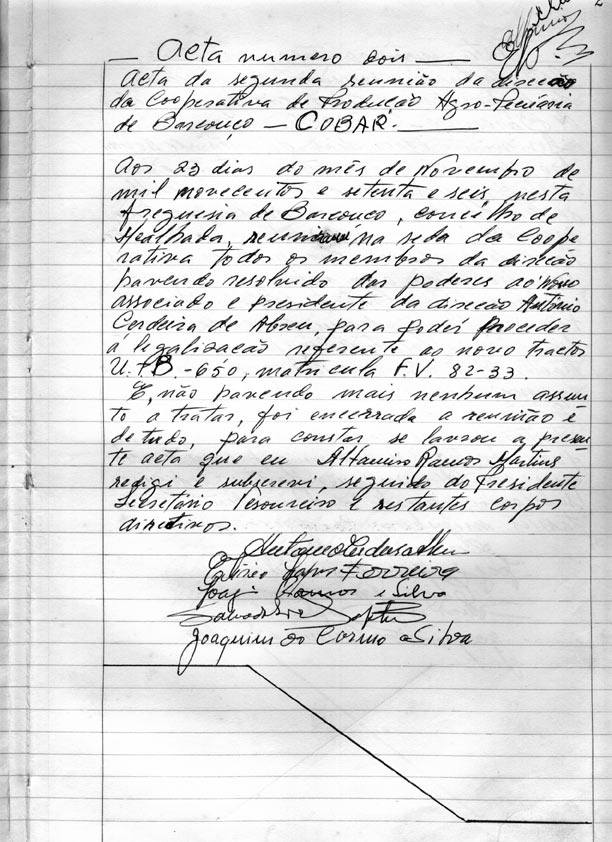 — Acta numero dois —
Acta da segunda reunião da direcção
da Cooperativa de Producção Agro-Pecúaria
de Barcouço — COBAR. —
Aos 23 dias do mês de Novembro de
mil novecentos e setenta e seis, nesta
freguesia de Barcouço, concelho de
Mealhada, reuniram na sede da Coope
rativa todos os membros da direcção
havendo resolvido dar poderes ao novo
associado e presidente da direcção António
Cerdeira de Abreu, para poder proceder
á legalisacão referente ao novo tractor
U.T.B. -650, matricula F.V. 82-33.
E, não havendo mais nenhum assun
to a tratar, foi encerrada a reunião é
de tudo, para constar, se lavrou a presen
te acta que eu Altamiro Ramos Martins
redigi e subscrevi, seguido do Presidente
Secretário Tesoureiro e restantes corpos
directivos.
Antonio Cerdeira Abreu
Lopes Ferreira
Ramos e Silva
Joaquim do Carmo a Silva